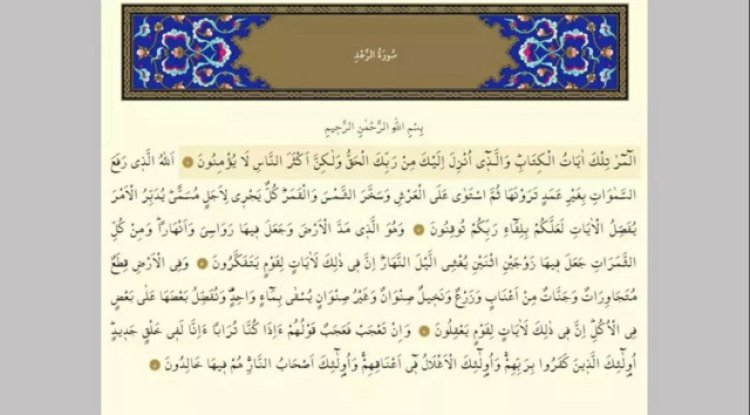 سُورَةُ الرَّعْدِ
بِسْمِ اللّٰهِ الرَّحْمٰنِ الرَّحٖيمِ
الٓمٓرٰ تِلْكَ اٰيَاتُ الْكِتَابِؕ وَالَّذٖٓي اُنْزِلَ اِلَيْكَ مِنْ رَبِّكَ الْحَقُّ وَلٰكِنَّ اَكْثَرَ النَّاسِ لَا يُؤْمِنُونَ ١ اَللّٰهُ الَّذٖي رَفَعَ
السَّمٰوَاتِ بِغَيْرِ عَمَدٍ تَرَوْنَهَا ثُمَّ اسْتَوٰى عَلَى الْعَرْشِ وَسَخَّرَ الشَّمْسَ وَالْقَمَرَؕ كُلٌّ يَجْرٖي لِاَجَلٍ مُسَمًّىؕ يُدَبِّرُ الْاَمْرَ
يُفَصِّلُ الْاٰيَاتِ لَعَلَّكُمْ بِلِقَٓاءِ رَبِّكُمْ تُوقِنُونَ ٢ وَهُوَ الَّذٖي مَدَّ الْاَرْضَ وَجَعَلَ فٖيهَا رَوَاسِيَ وَاَنْهَاراًؕ وَمِنْ كُلِّ
الثَّمَرَاتِ جَعَلَ فٖيهَا زَوْجَيْنِ اثْنَيْنِ يُغْشِي الَّيْلَ النَّهَارَؕ اِنَّ فٖي ذٰلِكَ لَاٰيَاتٍ لِقَوْمٍ يَتَفَكَّرُونَ ٣ وَفِي الْاَرْضِ قِطَعٌ
مُتَجَاوِرَاتٌ وَجَنَّاتٌ مِنْ اَعْنَابٍ وَزَرْعٌ وَنَخٖيلٌ صِنْوَانٌ وَغَيْرُ صِنْوَانٍ يُسْقٰى بِمَٓاءٍ وَاحِدٍؕ وَنُفَضِّلُ بَعْضَهَا عَلٰى بَعْضٍ
فِي الْاُكُلِؕ اِنَّ فٖي ذٰلِكَ لَاٰيَاتٍ لِقَوْمٍ يَعْقِلُونَ ٤ وَاِنْ تَعْجَبْ فَعَجَبٌ قَوْلُهُمْ ءَاِذَا كُنَّا تُرَاباً ءَاِنَّا لَفٖي خَلْقٍ جَدٖيدٍؕ
اُو۬لٰٓئِكَ الَّذٖينَ كَفَرُوا بِرَبِّهِمْۚ وَاُو۬لٰٓئِكَ الْاَغْلَالُ فٖٓي اَعْنَاقِهِمْۚ وَاُو۬لٰٓئِكَ اَصْحَابُ النَّارِۚ هُمْ فٖيهَا خَالِدُونَ ٥